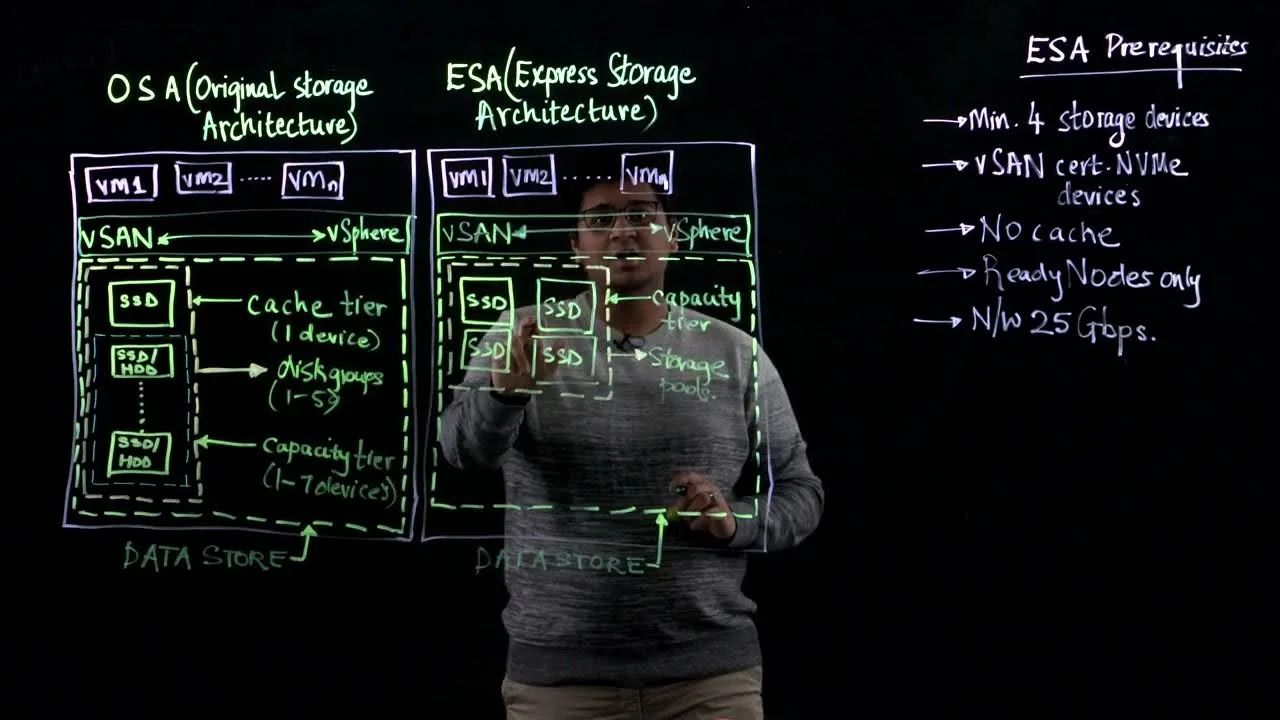 OSA (Original storage
Architecture)
VM1 VM2 ..... VMn
vSAN vSphere
SSD
Cache tier
(1 device)
SSD/
HDD
disk groups
(1-5)
SSD/
HDD
Capacity tier
(1-7 devices)
DATA STORE
ESA (Express Storage
Architecture)
VM1 VM2 ...... VMn
vSAN vSphere
SSD SSD
SSD SSD
capacity
tier
Storage
pools.
DATA STORE
ESA Prerequisites
Min. 4 storage devices
vSAN cert. NVMe
devices
No cache
Ready Nodes only
N/w 25 Gbps.